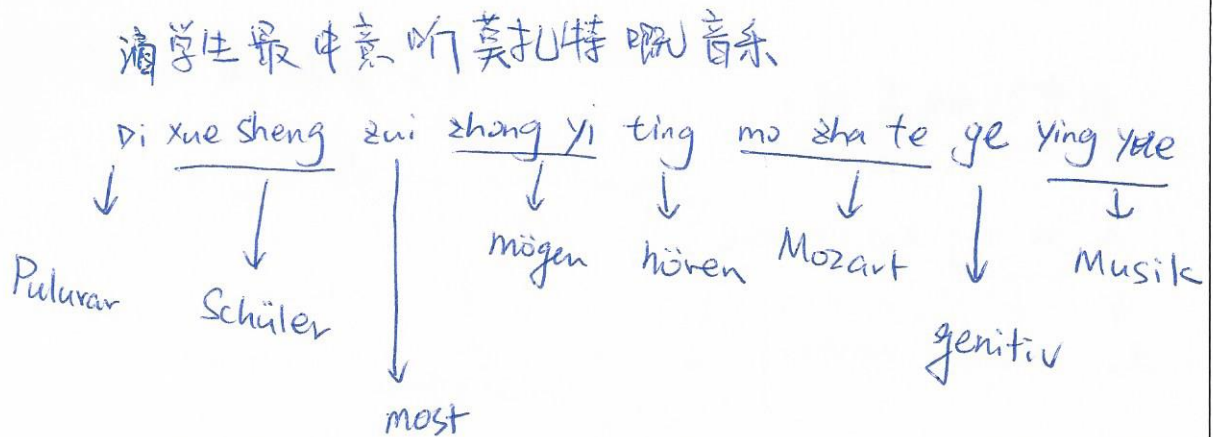 滴学生最中意听莫扎特嘅音乐
Di xue sheng zui zhong yi ting mo zha te ge ying yue
Pulurar Schüler most mögen hören Mozart genitiv Musik